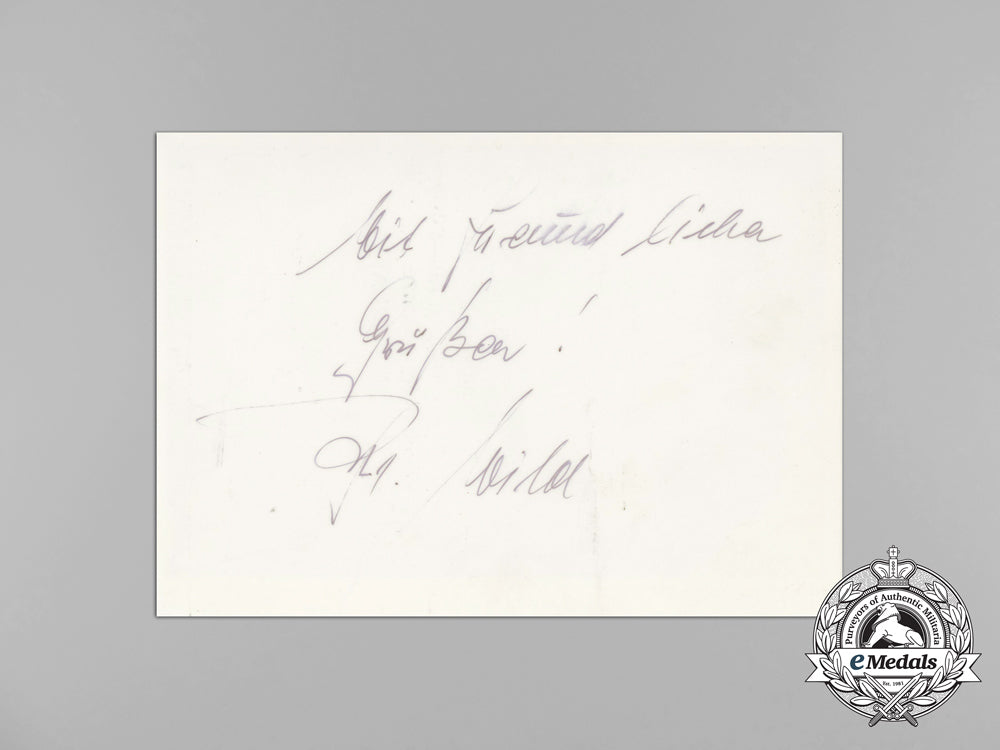 Mit freundlichen
Grüßen!
Wild
Purveyors of Authentic Militaria
eMedals
Est. 1981